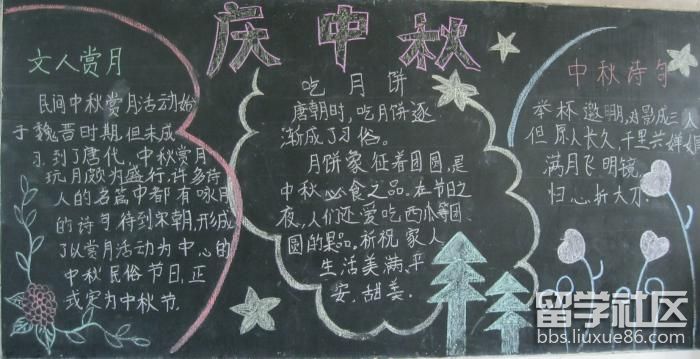 庆中秋
文人赏月
民间中秋赏月活动始
于魏晋时期,但未成
习.到了唐代,中秋赏月
玩月颇为盛行,许多诗
人的名篇中都有咏月
的诗句.待到宋朝,形成
了以赏月活动为中心的
中秋民俗节日,正
式定为中秋节.
吃月饼
唐朝时,吃月饼逐
渐成了习俗。
月饼象征着团圆,是
中秋必食之品.在节日之
夜,人们还爱吃西瓜等团
圆的果品,祈祝家人
生活美满,平
安,甜美.
中秋诗句
举杯邀朋,对影成三人
但原人长久,千里共婵娟
满月飞明镜,
归心折大刀.
留学社区
bbs.liuxue86.com